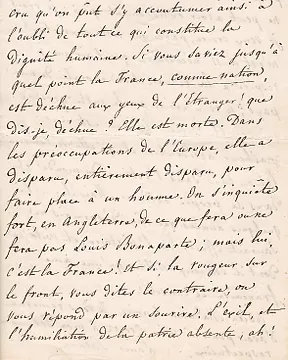 cru qu'on pût s'y accoutumer ainsi à
l'oubli de tout ce qui constitue la
dignité humaine. Si vous saviez jusqu'à
quel point la France, comme nation,
est déchue aux yeux de l'Etranger; que
dis-je, déchue? Elle est morte. Dans
les préoccupations de l'Europe, elle a
disparu, entièrement disparu, pour
faire place à un homme. On s'inquiète
fort, en Angleterre, de ce que fera ou ne
fera pas Louis Bonaparte; mais lui,
c'est la France! Et si, la rougeur sur
le front, vous dites le contraire, on
vous répond par un sourire. L'exil, et
l'humiliation de la patrie absente, ah!